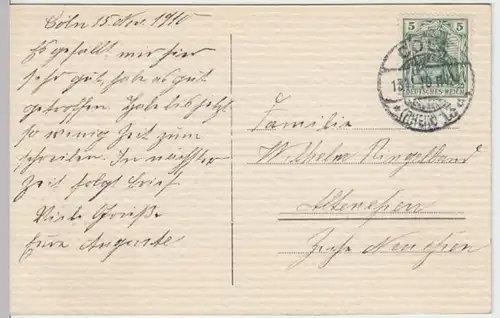 Cöln 15. Nov. 1910
Es gefällt mir hier
sehr gut, habe es gut
getroffen. Habe bis jetzt
so wenig Zeit zum
schreiben. In nächster
Zeit folgt Brief.
Viele Grüße
Eure Auguste
5 5
DEUTSCHES REICH
CÖLN
(RHEIN)
Familie
Wilhelm Ringelband
Altenessen
Zeche Neuessen